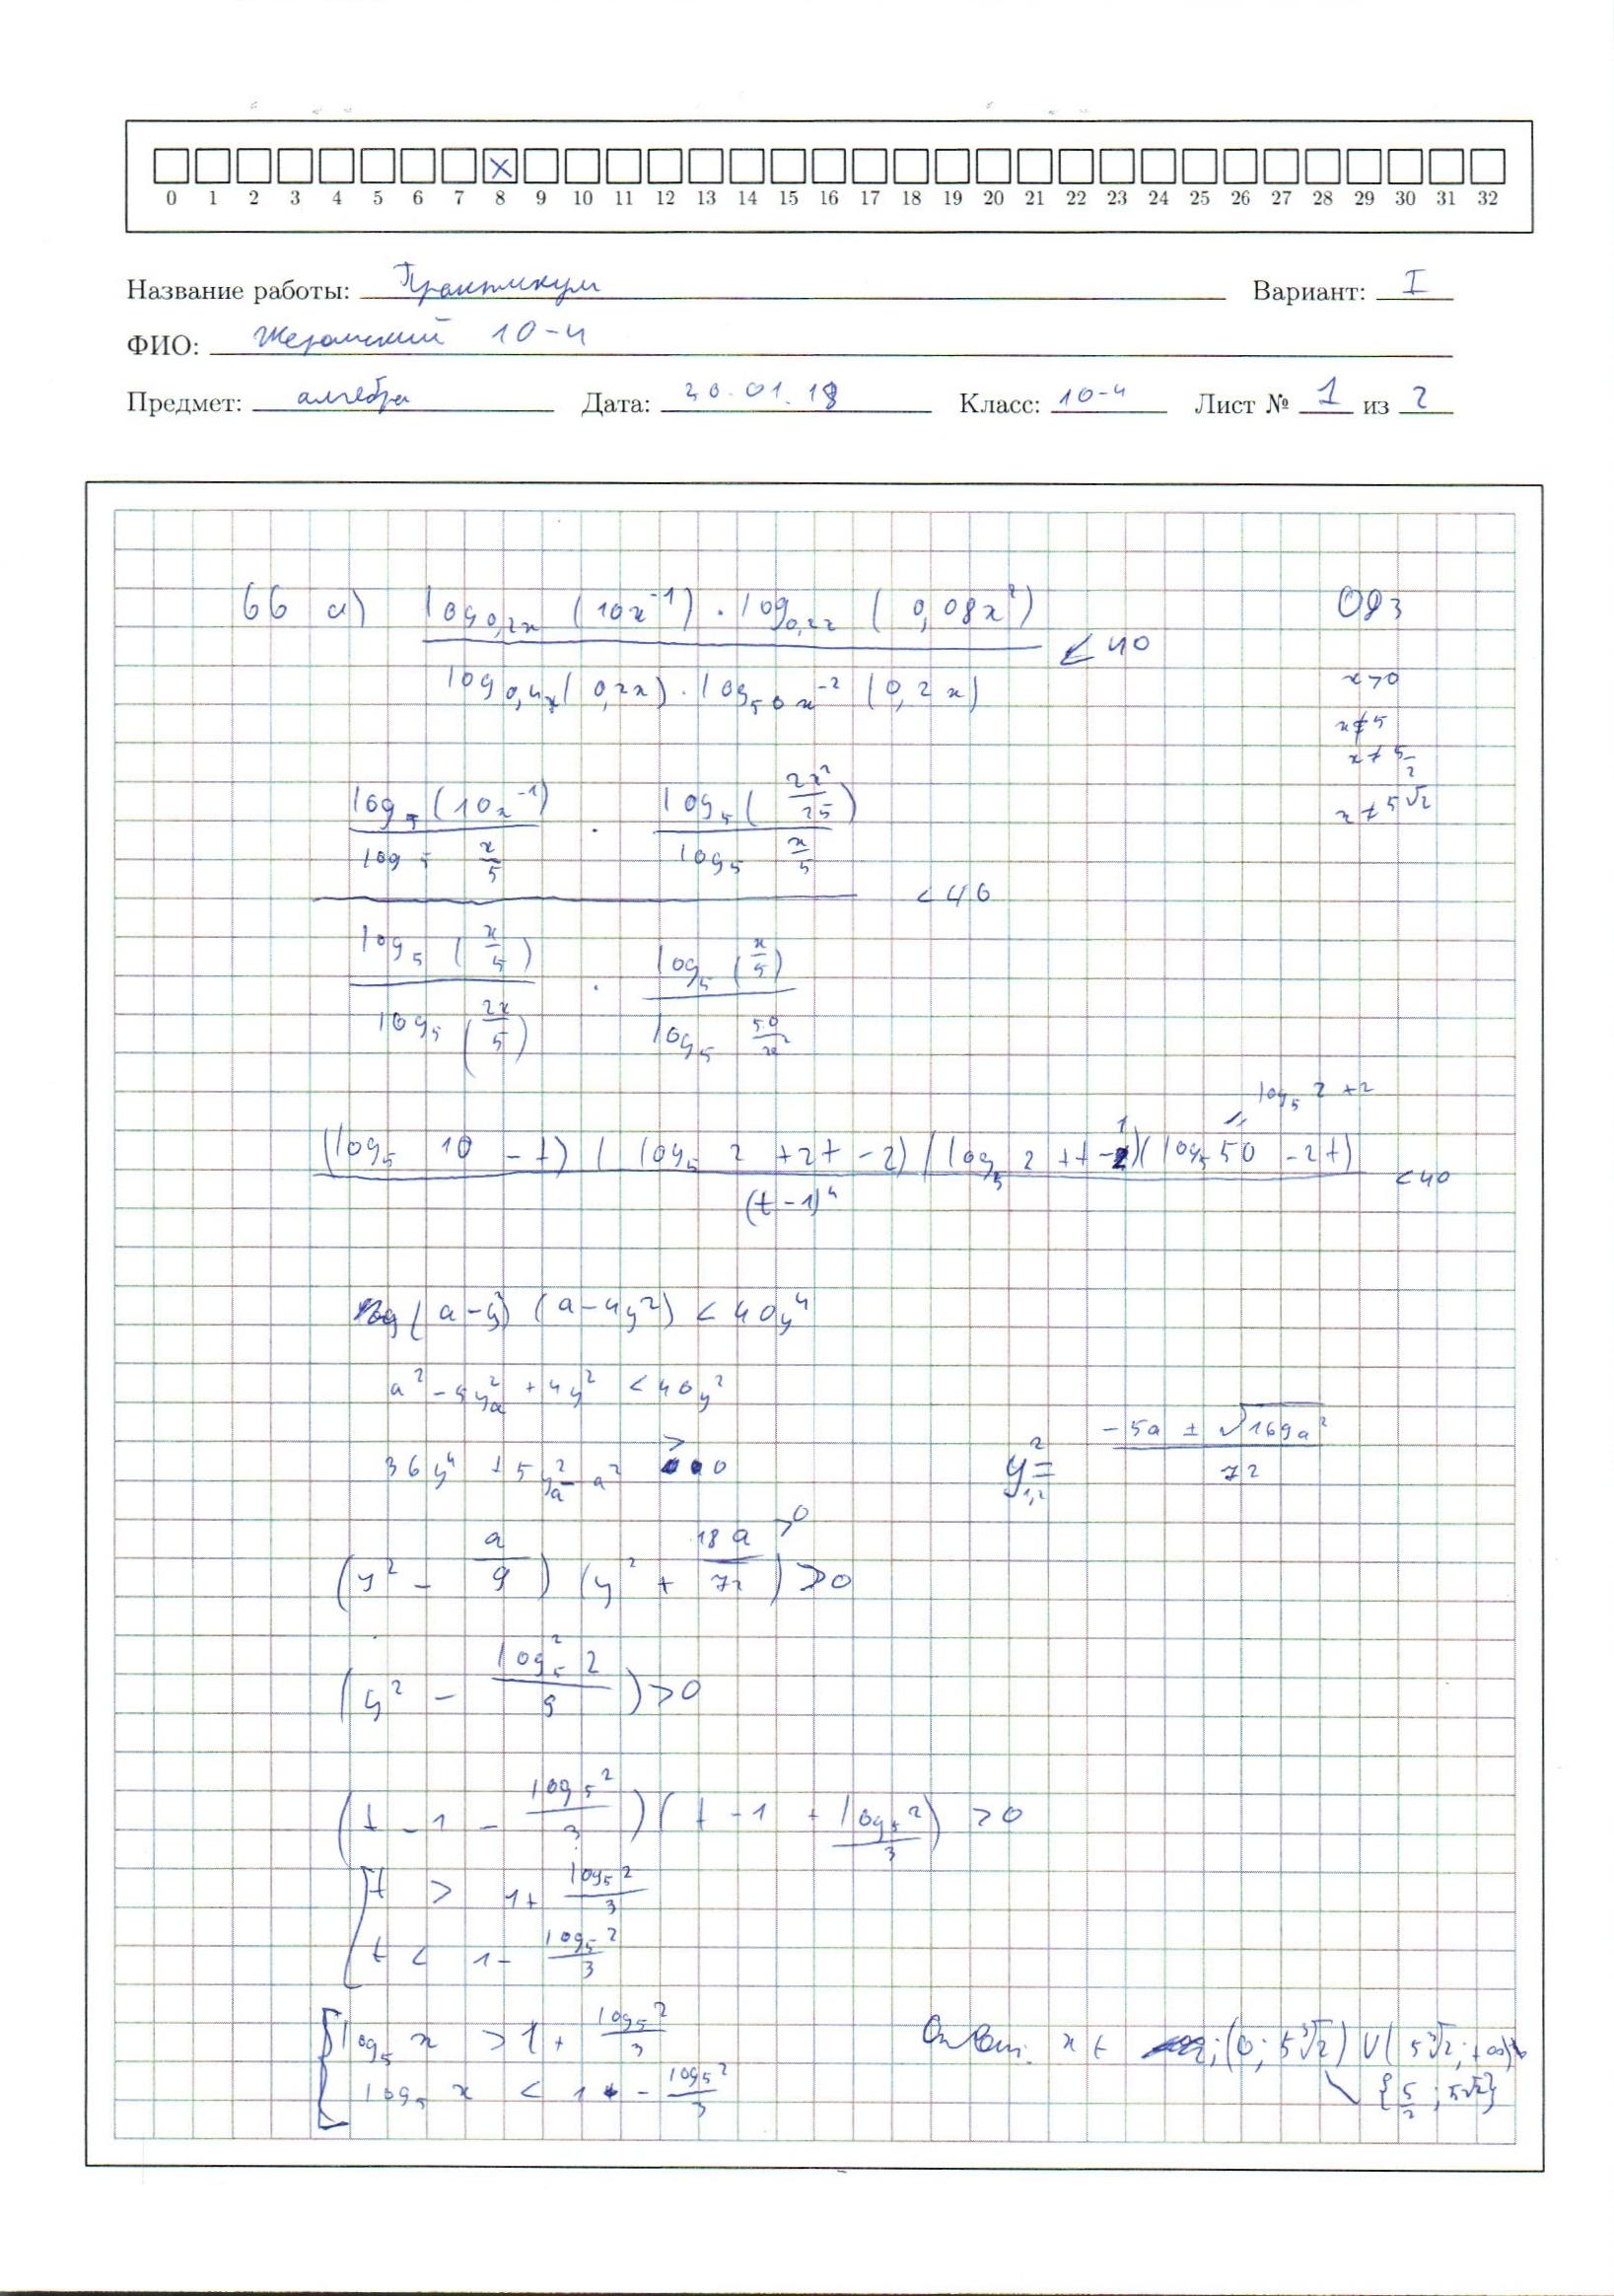 0 1 2 3 4 5 6 7 8 9 10 11 12 13 14 15 16 17 18 19 20 21 22 23 24 25 26 27 28 29 30 31 32
Название работы: Практикум Вариант: I
ФИО: 10-4
Предмет: алгебра Дата: 20.01.18 Класс: 10-4 Лист № 1 из 2
66 а) log_{0,2x} (10x^{-1}) · log_{0,2x} (0,08x^2) ОДЗ
< 40
log_{0,4x} (0,2x) · log_{50x^{-2}} (0,2x) x>0
x≠5
x≠5/2
x≠5√2
log_5 (10x^{-1}) · log_5 (2x^2/25)
log_5 x/5 log_5 x/5
< 40
log_5 (x/5) · log_5 (x/5)
log_5 (2x/5) log_5 50/x^2
log_5 2 + 2
(log_5 10 - t) (log_5 2 + 2t - 2) (log_5 2 + t - 1) (log_5 50 - 2t) < 40
(t - 1)^4
(a - y^2) (a - 4y^2) < 40y^4
a^2 - 5y^2a + 4y^2 < 40y^2
36y^4 + 5y^2a - a^2 > 0 y^2_{1,2} = (-5a ± √169a^2)/72
(y^2 - a/9) (y^2 + 18a/72) > 0
>0
(y^2 - log_5^2 2/9) > 0
(t - 1 - log_5 2/3) (t - 1 + log_5 2/3) > 0
[t > 1 + log_5 2/3
t < 1 - log_5 2/3
[log_5 x > 1 + log_5 2/3
log_5 x < 1 - log_5 2/3
Ответ: x ∈ (0; 5∛2) ∪ (5∛2; +∞) \ {5/2; 5√2}